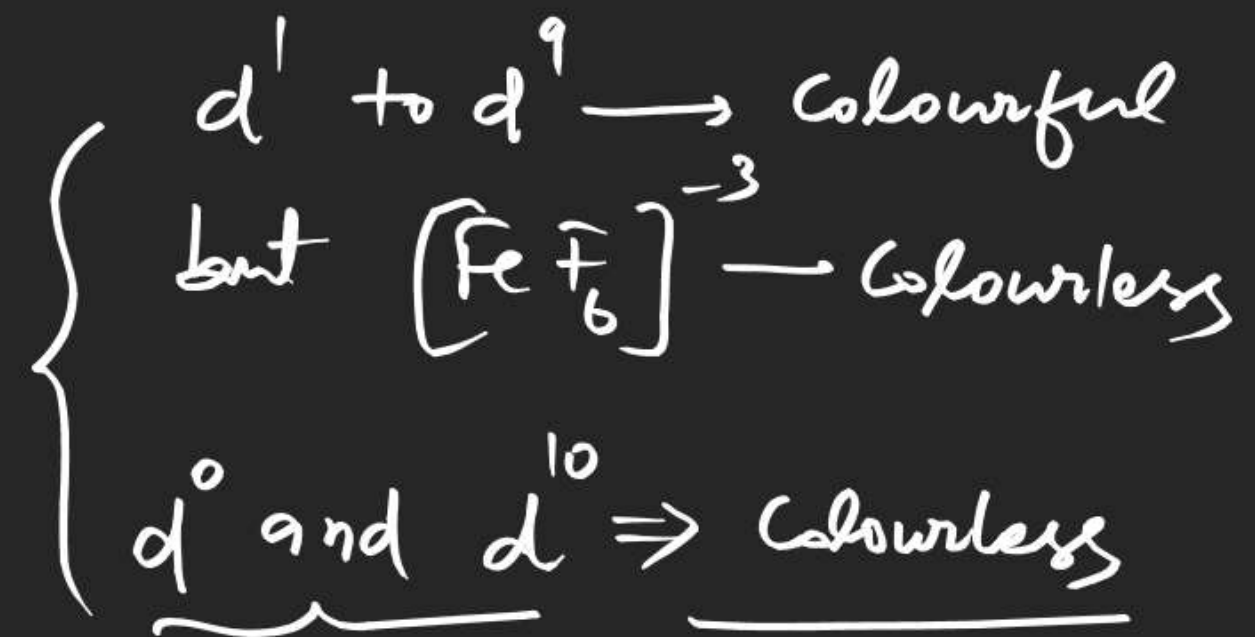 d¹ to d⁹ → Colourful
but [FeF₆]⁻³ — Colourless
d⁰ and d¹⁰ ⇒ Colourless